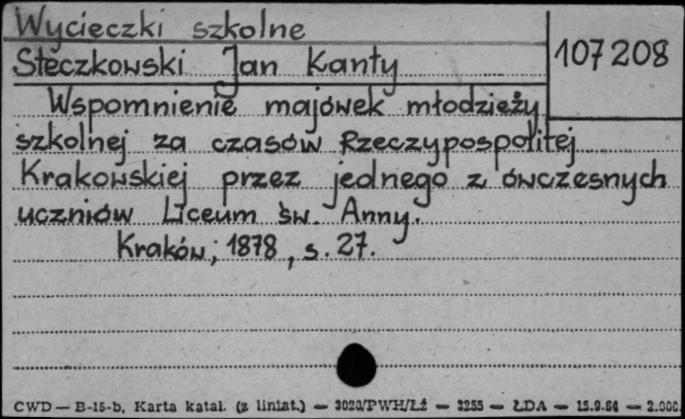 Wycieczki szkolne
107208
Steczkowski Jan Kanty
Wspomnienie majówek młodzieży
szkolnej za czasów Rzeczypospolitej
Krakowskiej przez jednego z ówczesnych
uczniów Liceum św. Anny.
Kraków, 1878, s. 27.
CWD — B-15-b, Karta katal. (z liniat.) — 3020/PWH/Łż — 3255 — ŁDA — 15.9.64 — 2.000